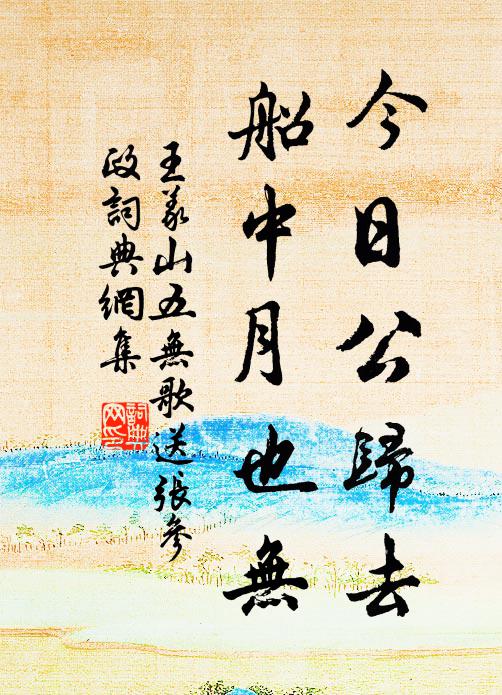 今日公歸去
船中月也無
王義山五無歌送張參
政詞典網集
詞典網印